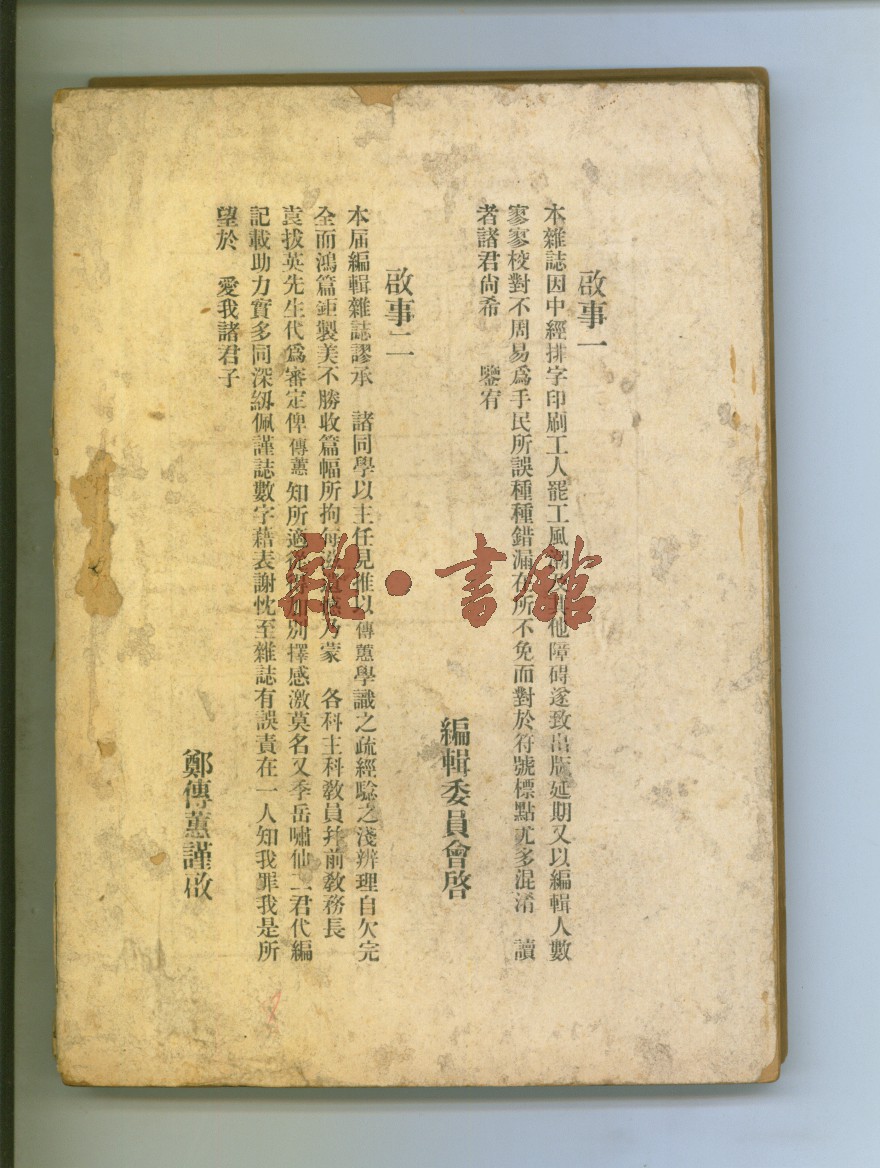 啟事一
本雜誌因中經排字印刷工人罷工風潮及其他障碍遂致出版延期又以編輯人數
寥寥校對不周易爲手民所誤種種錯漏在所不免而對於符號標點尤多混淆 讀
者諸君尙希 鑒宥
編輯委員會啓
啟事二
本屆編輯雜誌謬承 諸同學以主任見推以傳蕙學識之疏經驗之淺辨理自欠完
全而鴻篇鉅製美不勝收篇幅所拘每 乃蒙 各科主科敎員幷前敎務長
袁拔英先生代爲審定俾傳蕙知所適從 別擇感激莫名又季岳嘯仙二君代編
記載助力實多同深紉佩謹誌數字藉表謝忱至雜誌有誤責在一人知我罪我是所
望於 愛我諸君子
鄭傳蕙謹啟
雜·書館